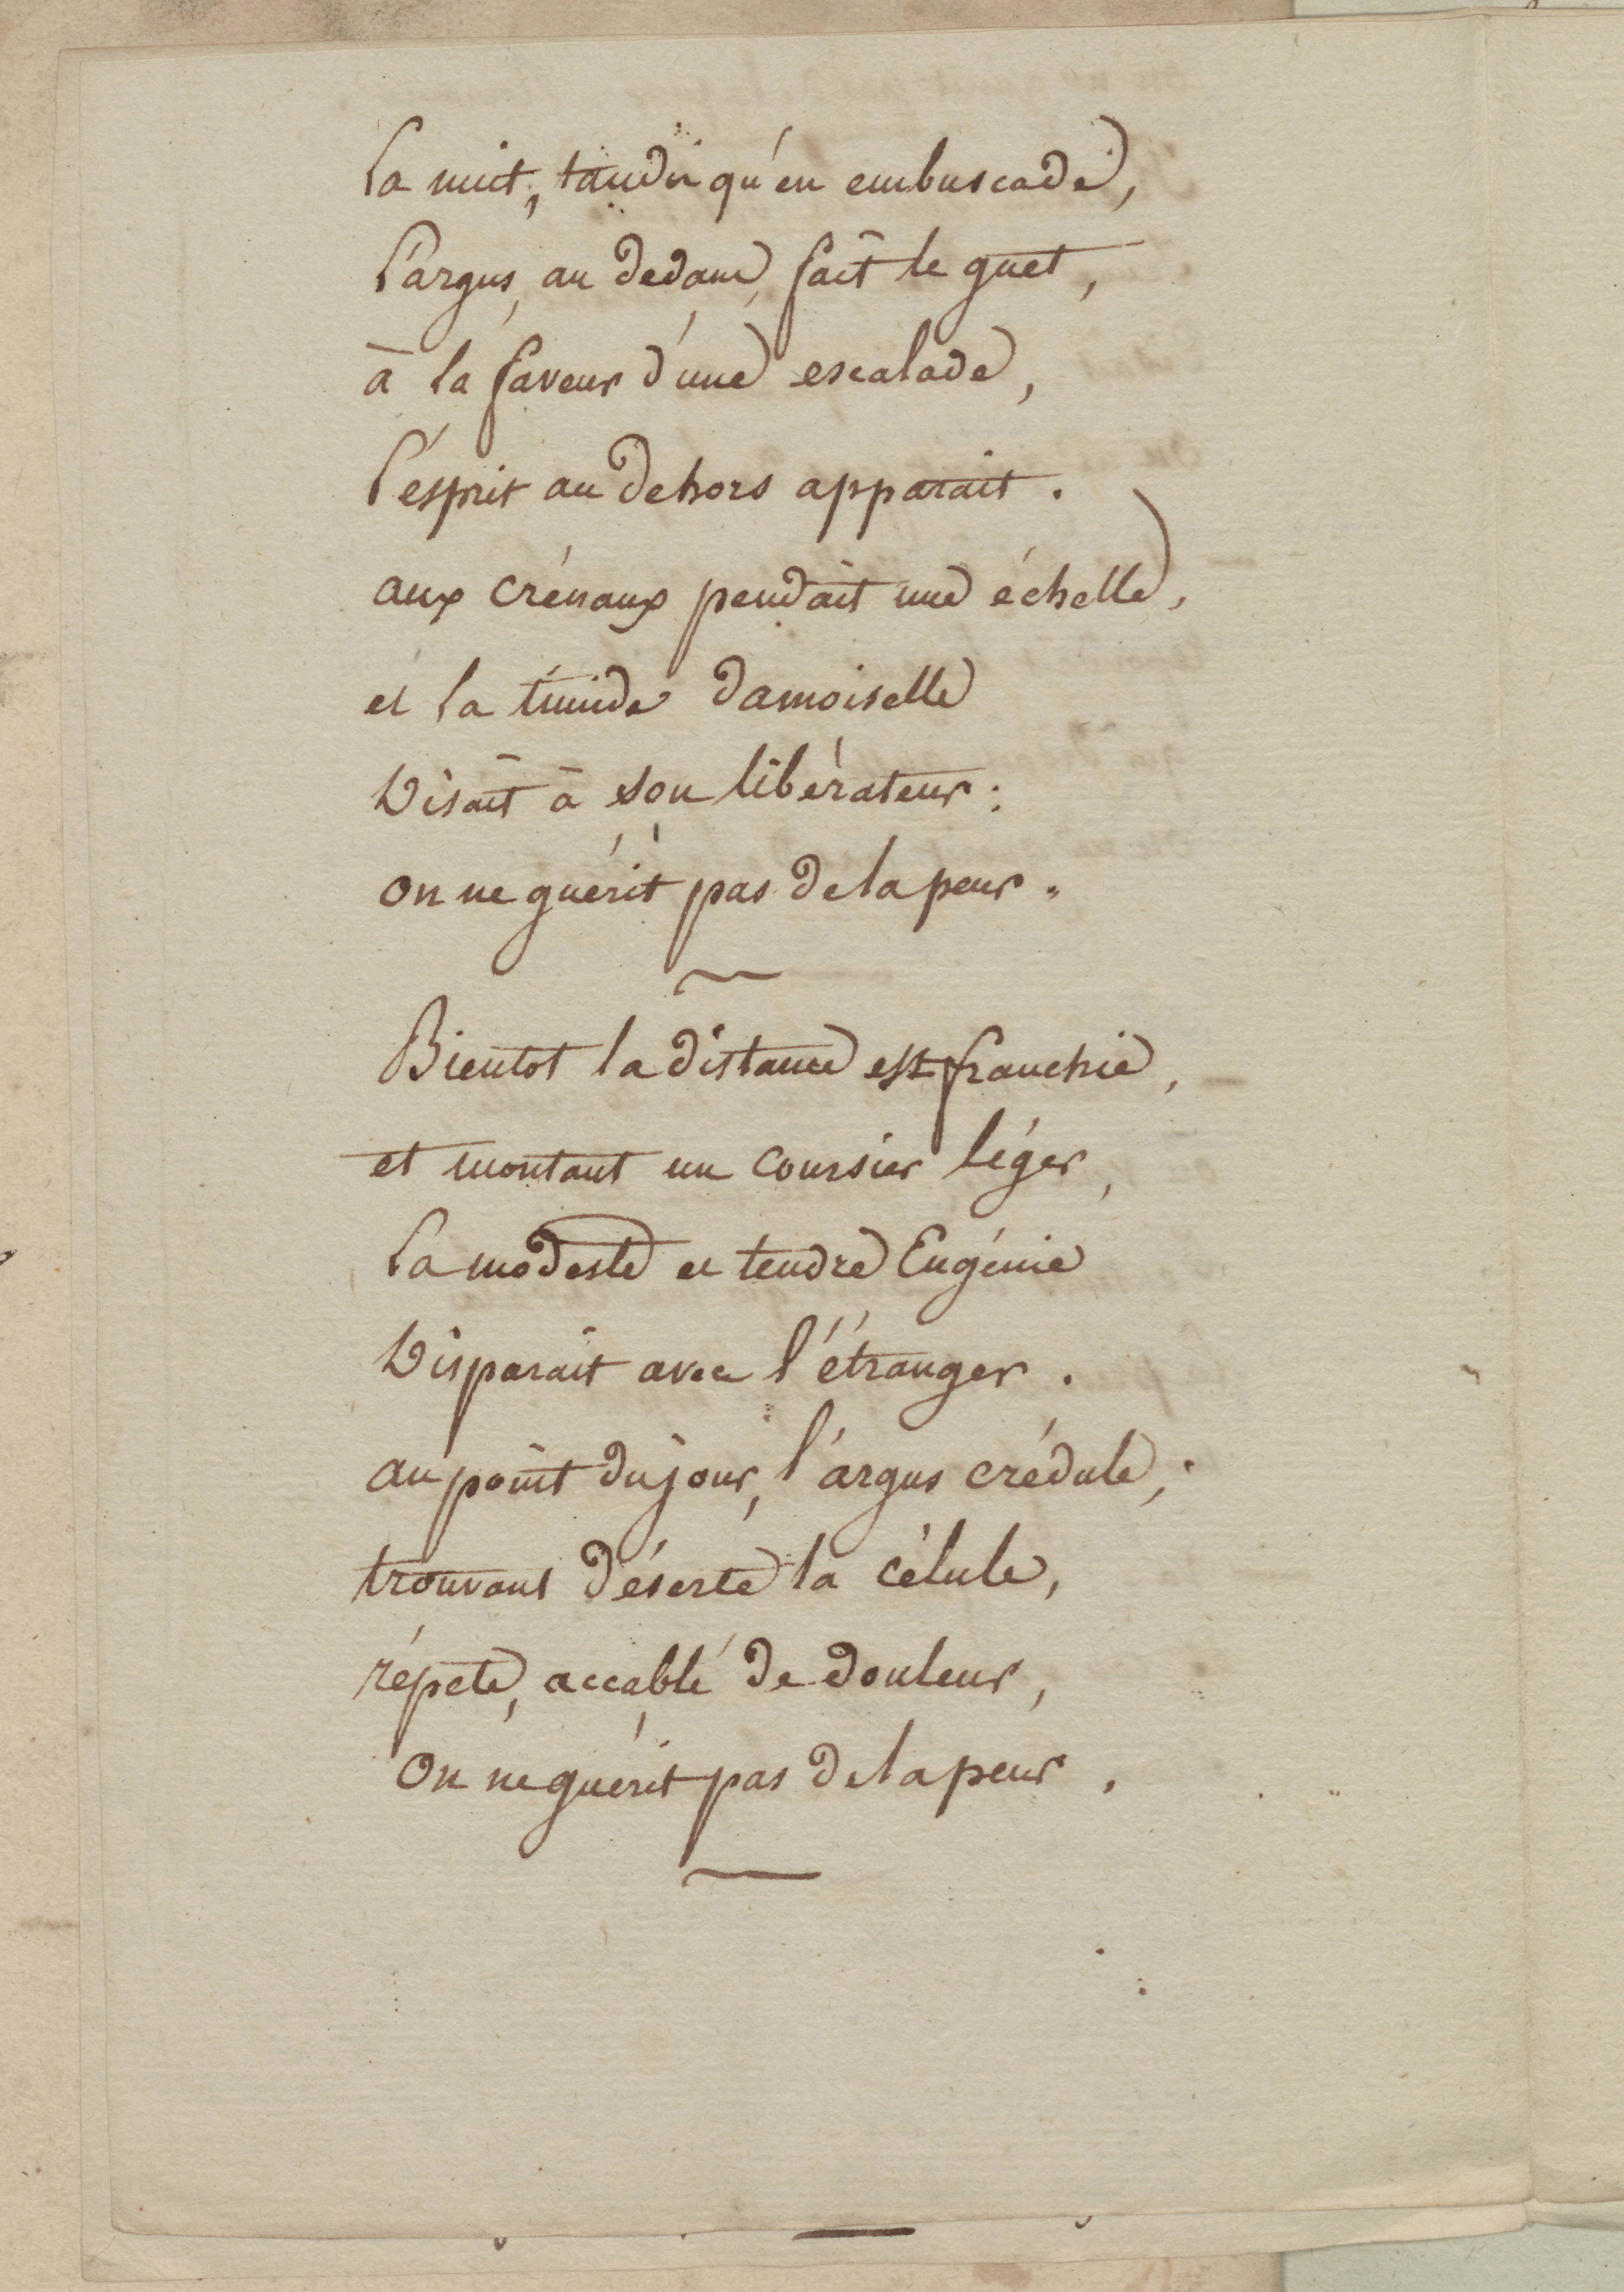 la nuit, tandis qu'en embuscade,
l'argus, au dedans, fait le guet,
à la faveur d'une escalade,
l'ésprit au dehors apparait.
aux crénaux pendait une échelle,
et la timide damoiselle
Disait à son libérateur:
on ne guérit pas de la peur.
Bientot la distance est franchie,
et montant un coursier léger,
la modeste et tendre Eugénie
Disparait avec l'étranger.
au point du jour, l'argus crédule,
trouvant déserte la célule,
répete, accablé de douleur,
On ne guérit pas de la peur.